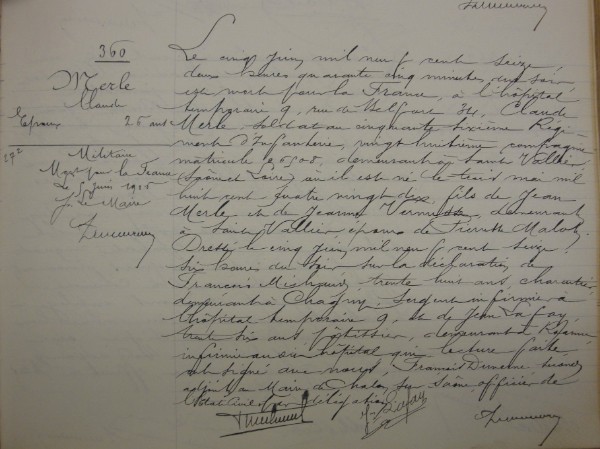 360
Merle
Claude
Epoux 26 ans
Militaire
Mort pour la France
Le 5 Juin 1916
Le Maire
Le cinq Juin mil neuf cent seize
deux heures quarante cinq minutes du soir
est mort pour la France, à l'hôpital
temporaire 9, rue de Belfort 34, Claude
Merle, soldat au cinquante sixième Régi
ment d'Infanterie, vingt huitième compagnie
matricule demeurant à Saint Vallier
(Saône et Loire) où il est né le trois mai mil
huit cent quatre vingt dix fils de Jean
Merle, et de Jeanne demeurant
à Saint Vallier époux de Pierrette Malot.
Dressé le cinq Juin mil neuf cent seize
six heures du soir sur la déclaration de
François Michaud, trente huit ans, charcutier
demeurant à Chagny, sergent infirmier à
l'hôpital temporaire 9, et de Jean Lafay,
trente six ans, pâtissier, demeurant à Roanne
infirmier au dit hôpital qui lecture faite
ont signé avec nous, Francis
adjoint au Maire de Chalon sur Saône officier de
l'état civil par délégation